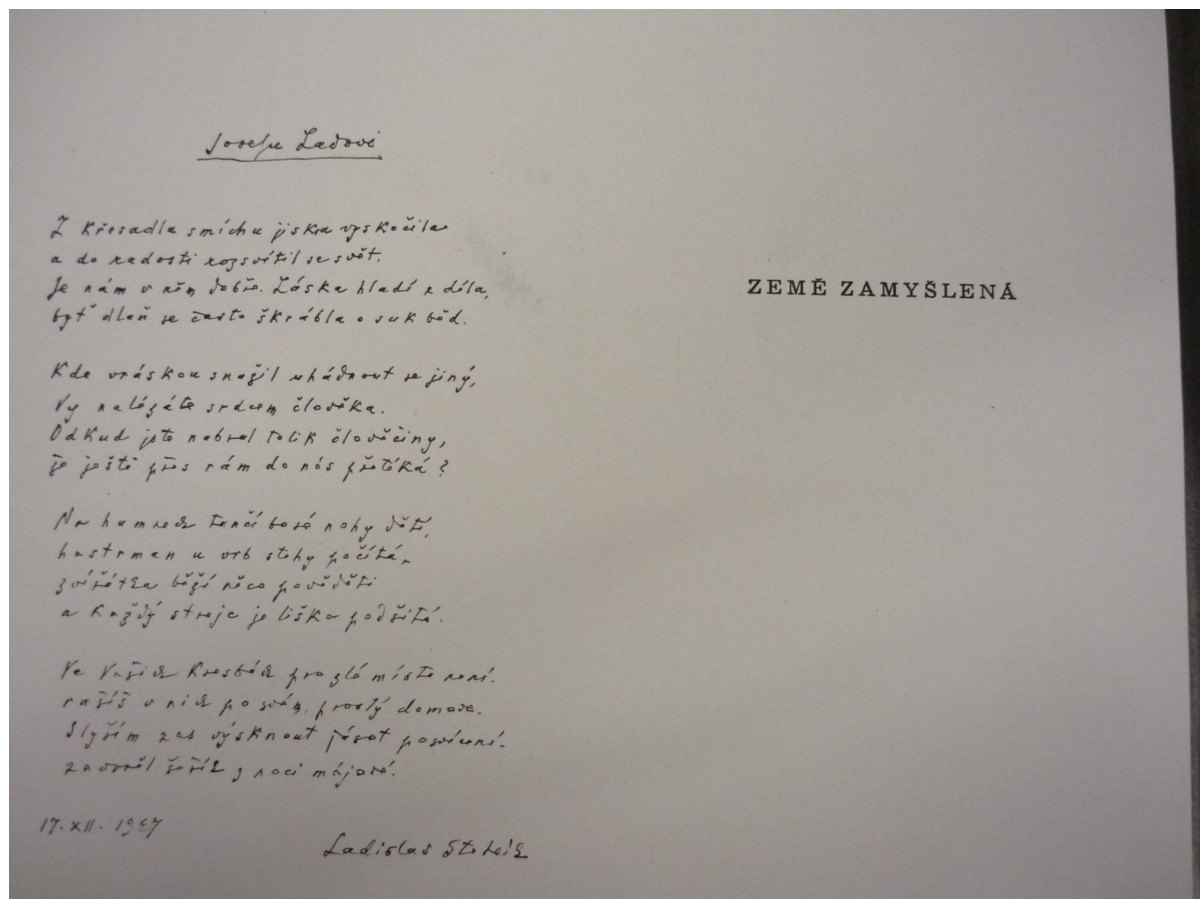 Josefu Ladovi
Z křesadla smíchu jiskra vyskočila
a do radosti rozsvítil se svět.
Je nám v něm dobře. Láska hladí z díla,
byť dlaň se často škrábla o suk běd.
Kde vráskou snažil uhádnout se jiný,
Vy nalézáte srdcem člověka.
Odkud jste nabral tolik člověčiny,
že ještě přes rám do nás přetéká?
Na humnech tančí bosé nohy dětí,
hastrman u vrb stehy počítá,
zvířátka běží něco pověděti
a každý strejc je liška podšitá.
Ve Vašich kresbách pro zlé místa není.
rašíš v nich po svém, prostý domove.
Slyším zas výsknout jásot posvícení.
zavoněl šeřík z noci májové.
17. XII. 1947
Ladislav Stehlík
ZEMĚ ZAMYŠLENÁ